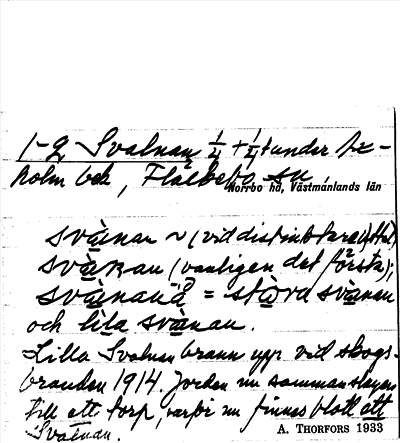 1-2 Svalnan 1/4 + 1/4 t under
holm och, Fläckebo sn
Norrbo hd, Västmanlands län
svänan ~ (vid distinktare uttal)
(vanligen det första);
= svänan
och lila svänan.
Lilla Svalnan brann upp vid skogs-
branden 1914. Jorden nu sammanslagen
till ett torp, varför nu finnes blott ett
Svalnan.
A. THORFORS 1933